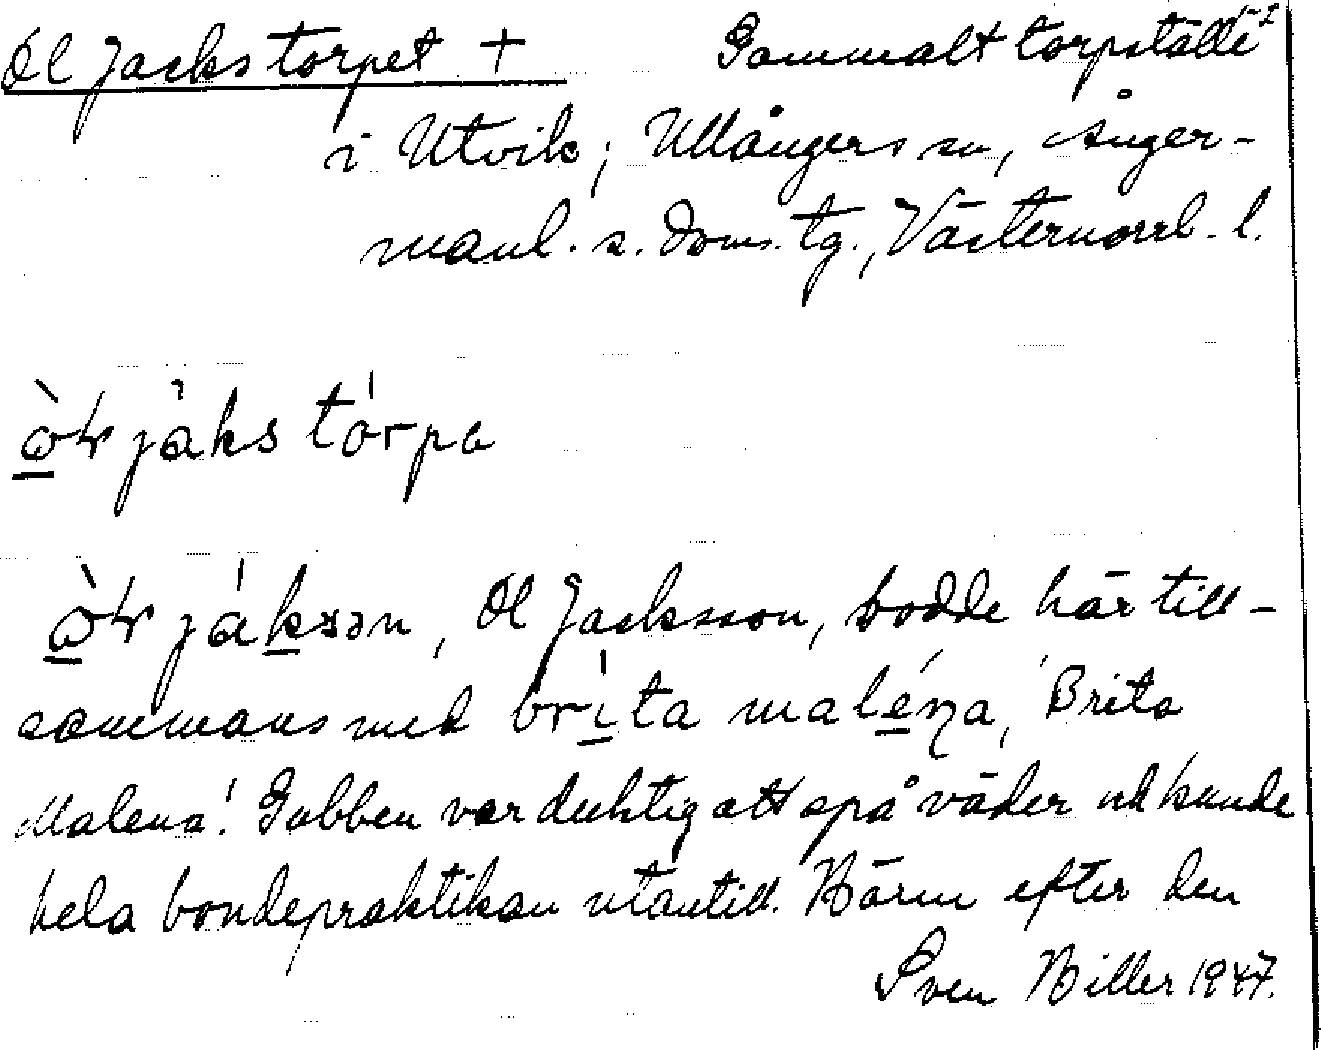 Ol Jackstorpet + Gammalt torpställe
i Utvik, Ullångers sn, Ånger-
manl. s. doms. tg., Västernorrl. l.
jàks tórpa
jákson, Ol Jacksson, bodde här till-
sammans med bríta maléna, Brita
Malena! Gubben var duktig att spå väder och kunde
hela bondepraktikan utantill. Närm efter den
Sven Hiller 1947.